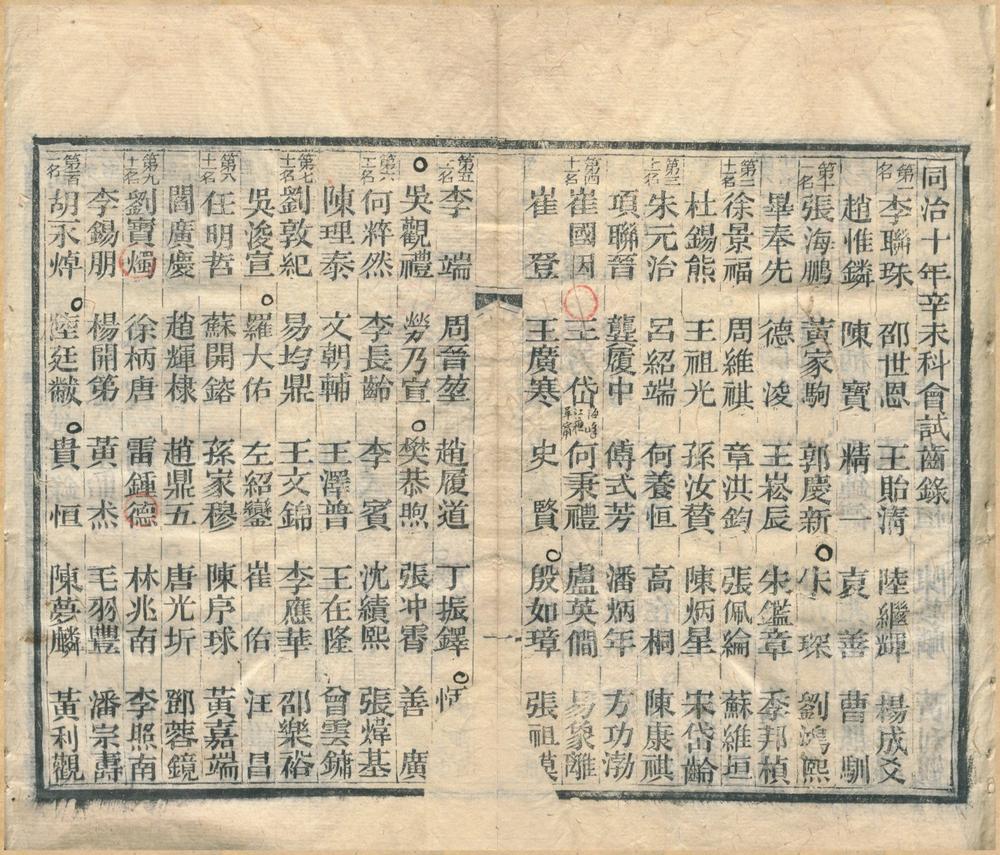 同治十年辛未科會試齒錄
第一名 李聯珠 邵世恩 王貽清 陸繼輝 楊成爻
趙惟鏻 陳寶 精一 袁善 曹馴
第十一名 張海鵬 黃家駒 郭慶新 朱琛 劉鴻熙
畢奉先 德浚 王崧辰 朱鑑章 李邦楨
第二十一名 徐景福 周維祺 章洪鈞 張佩綸 蘇維垣
杜錫熊 王祖光 孫汝贊 陳炳星 宋岱齡
第三十一名 朱元治 呂紹端 何養恒 高桐 陳康祺
項聯晉 龔履中 傅式芳 潘炳年 方功渤
第四十一名 崔國因 王岱 何秉禮 盧英僴 易象離
崔登 王廣寒 史賢 殷如璋 張祖謨
第五十一名 李端 周晉堃 趙履道 丁振鐸 恬
吳觀禮 勞乃宣 樊恭煦 張沖霄 善廣
第六十一名 何粹然 李長齡 李賓 沈績熙 張煒基
陳理泰 文朝輔 王澤普 王在隆 曾雲鏞
第七十一名 劉敦紀 易均鼎 王文錦 李應華 邵樂裕
吳浚宣 羅大佑 左紹鑾 崔佑 汪昌
第八十一名 任明哲 蘇開鎔 孫家穆 陳序球 黃嘉端
閻廣慶 趙輝棣 趙鼎五 唐光圻 鄧蓉鏡
第九十一名 劉寶燭 徐柄唐 雷鍾德 林兆南 李照南
李錫朋 楊開第 黃杰 毛羽豐 潘宗壽
第一百一名 胡永焯 陸廷黻 貴恒 陳夢麟 黃利觀